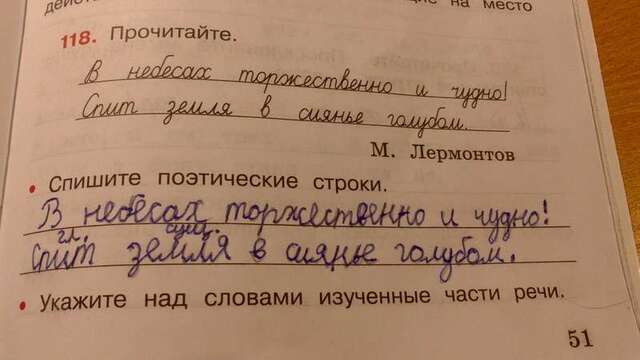 на место
118. Прочитайте.
В небесах торжественно и чудно!
Спит земля в сиянье голубом.
М. Лермонтов
• Спишите поэтические строки.
В небесах торжественно и чудно!
гл. сущ.
Спит земля в сиянье голубом.
• Укажите над словами изученные части речи.
51